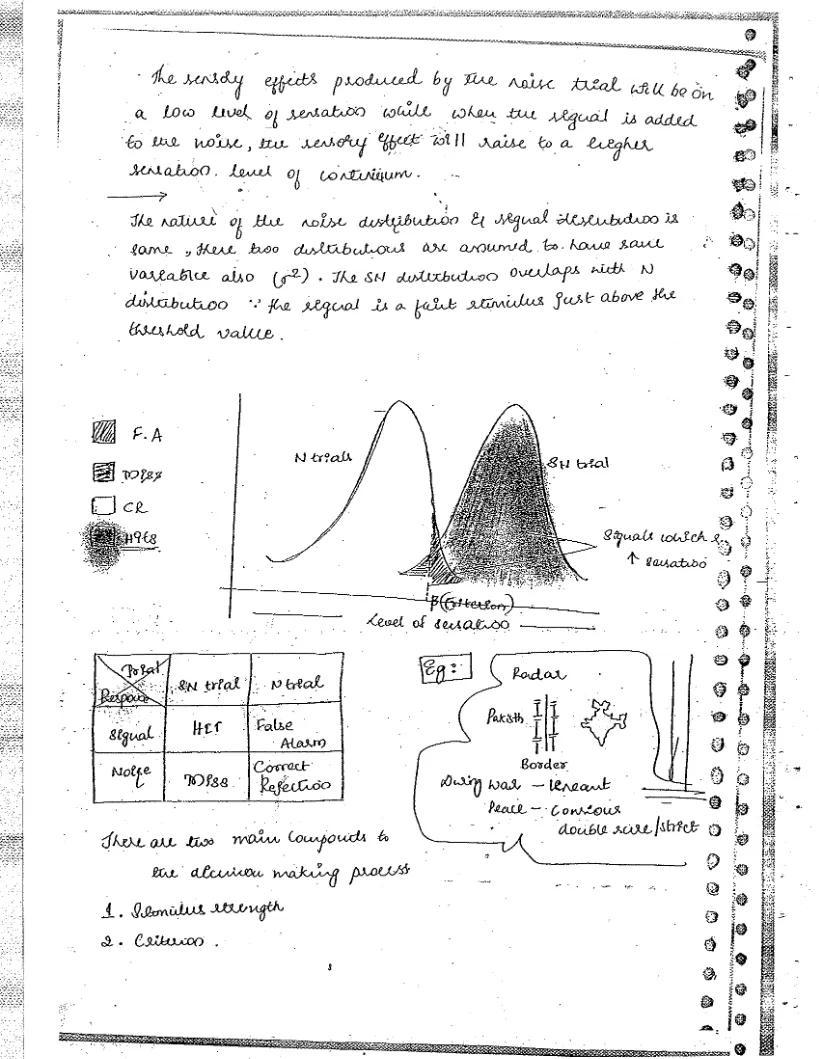 The sensory effects produced by the noise trial will be on
a low level of sensation while when the signal is added
to the noise, the sensory effect will raise to a higher
sensation level of continuum.
The nature of the noise distribution & signal distribution is
same, These two distributions are assumed to have same
variable also (σ²). The SN distribution overlaps with N
distribution ∵ the signal is a faint stimulus just above the
threshold value.
F.A
Miss
CR
Hits
N trials
SN trial
Signals which
↑ sensation
β (Criterion)
Level of sensation
Trial
Response
SN trial
N trial
Signal
HIT
False
Alarm
Noise
Miss
Correct
Rejection
Eg:
Radar
Border
During war - lineant
Peace -
double sure / strict
There are two main compounds to
the decision making process
1. Stimulus strength
2. Criterion.